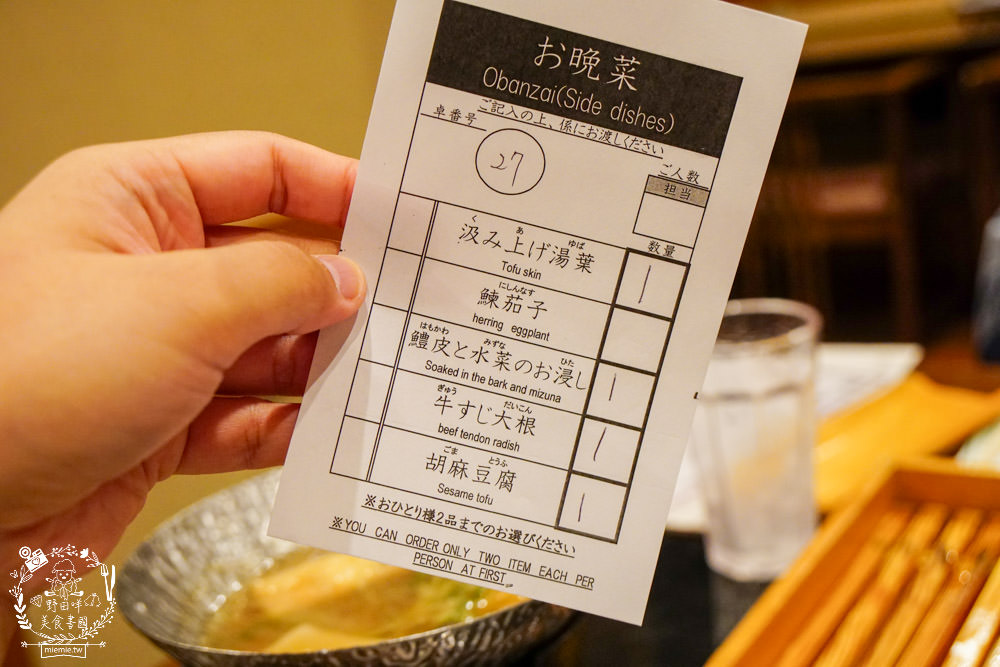 お晩菜
Obanzai(Side dishes)
ご記入の上、係にお渡しください
卓番号
27
ご人数
担当
数量
汲み上げ湯葉
く あ ゆば
Tofu skin
1
鰊茄子
にしんなす
herring eggplant
鱧皮と水菜のお浸し
はもかわ みずな ひた
Soaked in the bark and mizuna
1
牛すじ大根
ぎゅう だいこん
beef tendon radish
1
胡麻豆腐
ごま とうふ
Sesame tofu
1
※おひとり様2品までのお選びください
※YOU CAN ORDER ONLY TWO ITEM EACH PER
PERSON AT FIRST.
野田咩
美食書園
miemie.tw